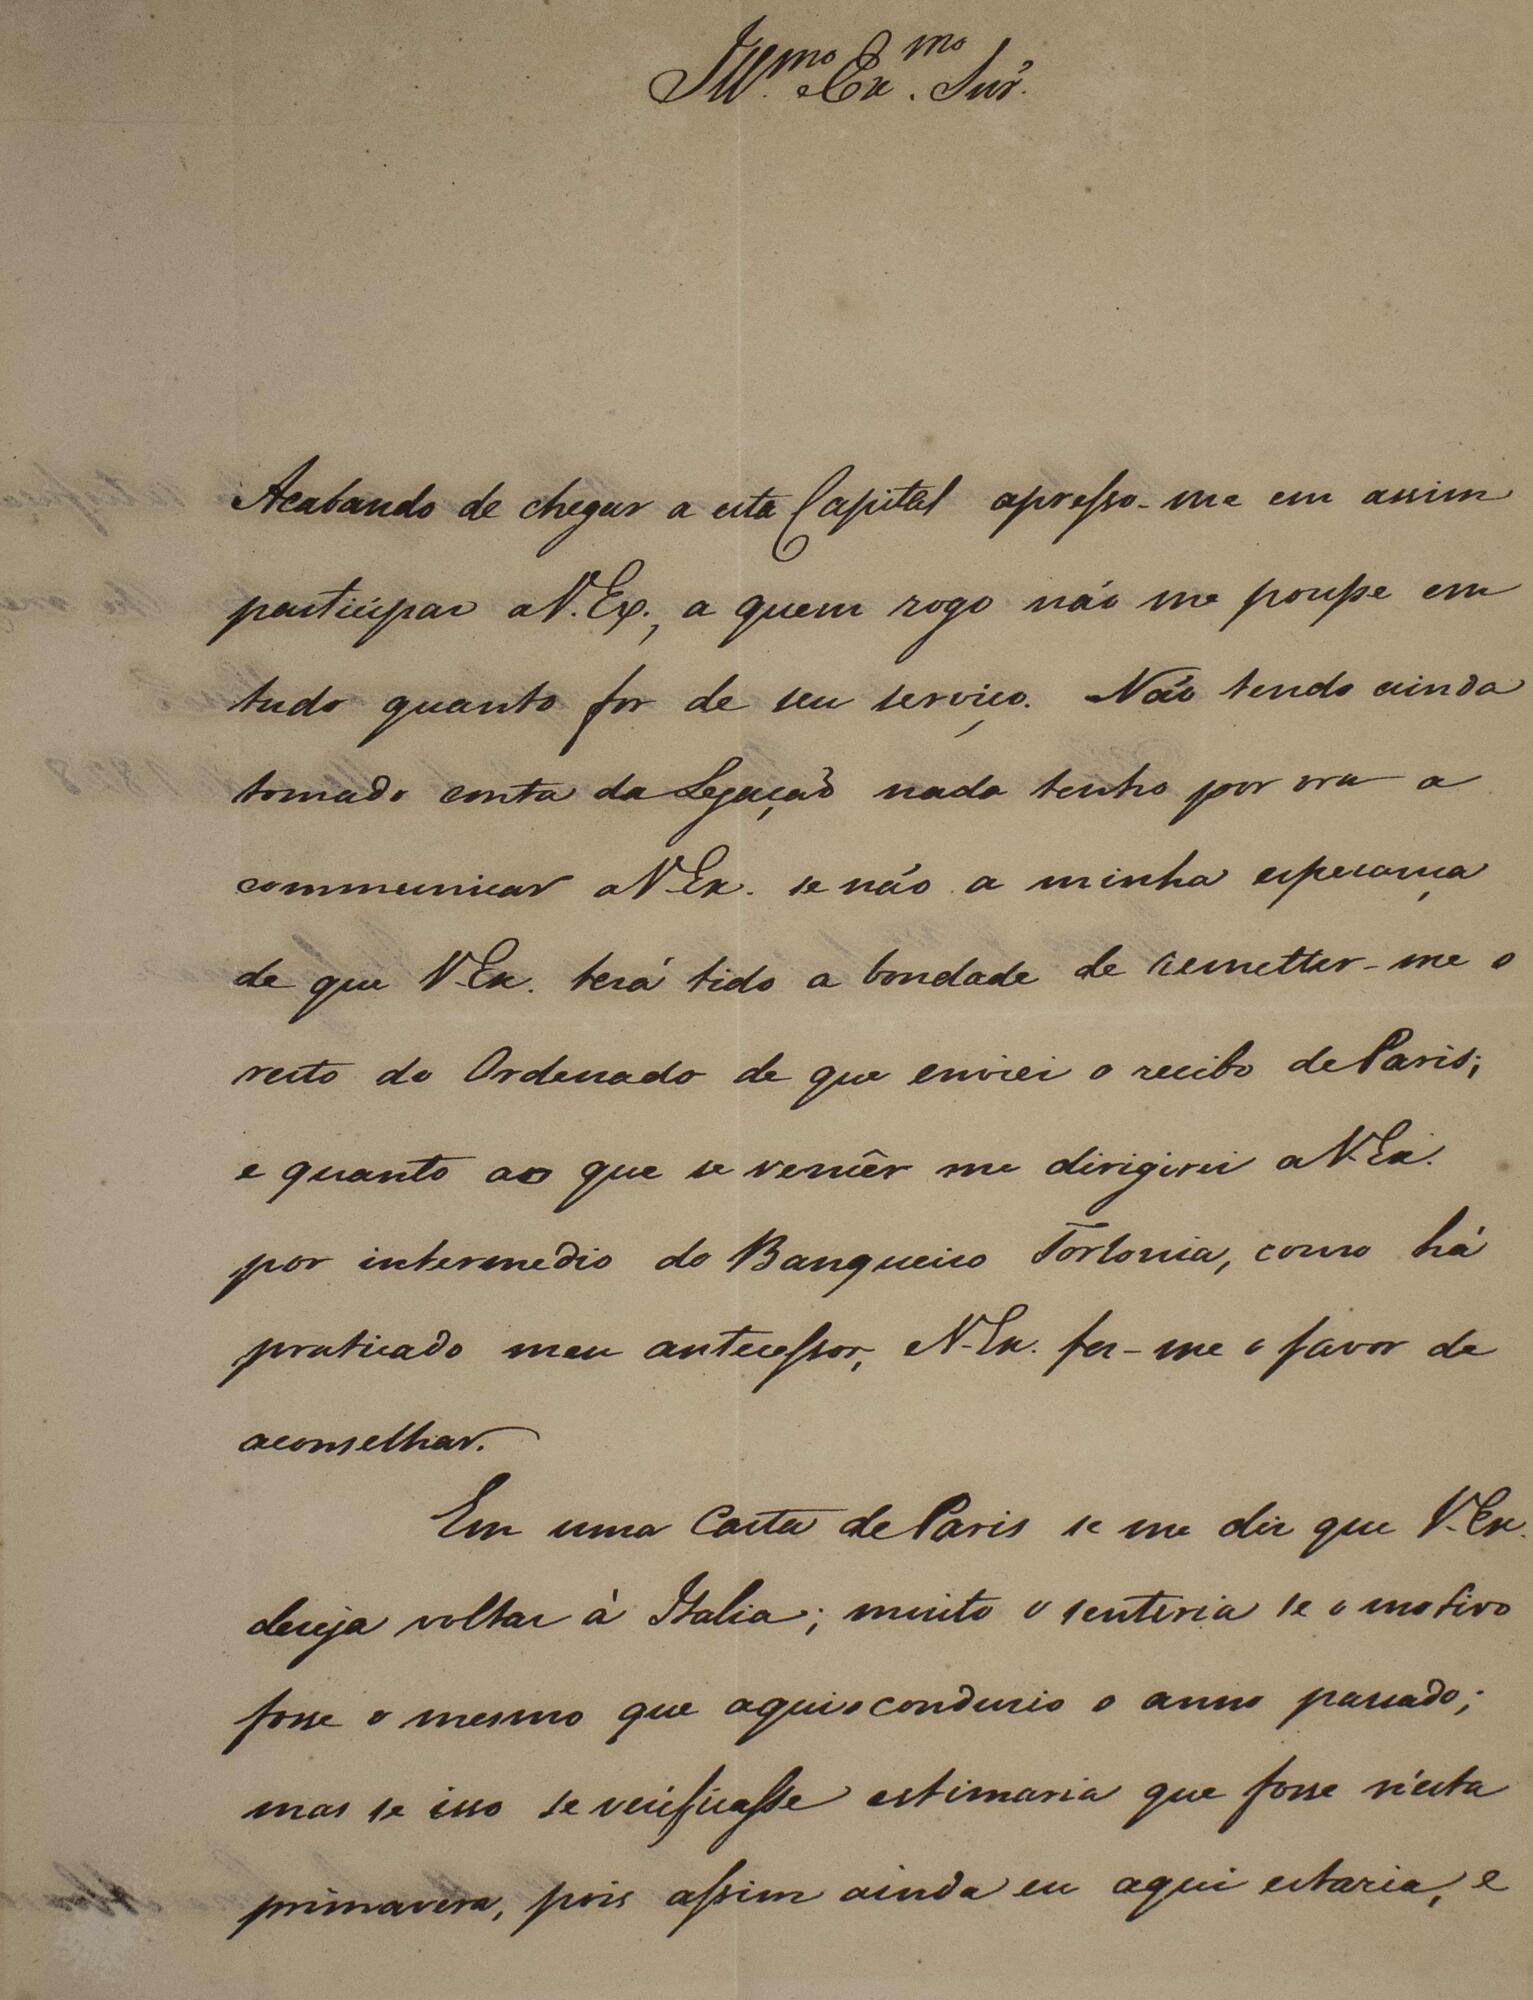 Ill.mo e Ex.mo Snr.
Acabando de chegar a esta Capital apresso-me em assim
participar a V. Ex., a quem rogo não me poupe em
tudo quanto for de seu serviço. Não tendo ainda
tomado conta da Legação nada tenho por ora a
communicar a V. Ex. se não a minha esperança
de que V. Ex. terá tido a bondade de remetter-me o
resto do Ordenado de que enviei o recibo de Paris;
e quanto ao que se vencêr me dirigirei a V. Ex.
por intermedio do Banqueiro Torlonia, como há
praticado meu antecessor, e V. Ex. fez-me o favor de
aconselhar.
Em uma Carta de Paris se me diz que V. Ex.
deseja voltar à Italia; muito o senteria se o motivo
fosse o mesmo que aqui o conduzio o anno passado;
mas se isso se verificasse estimaria que fosse n'esta
primavera, pois assim ainda eu aqui estaria, e